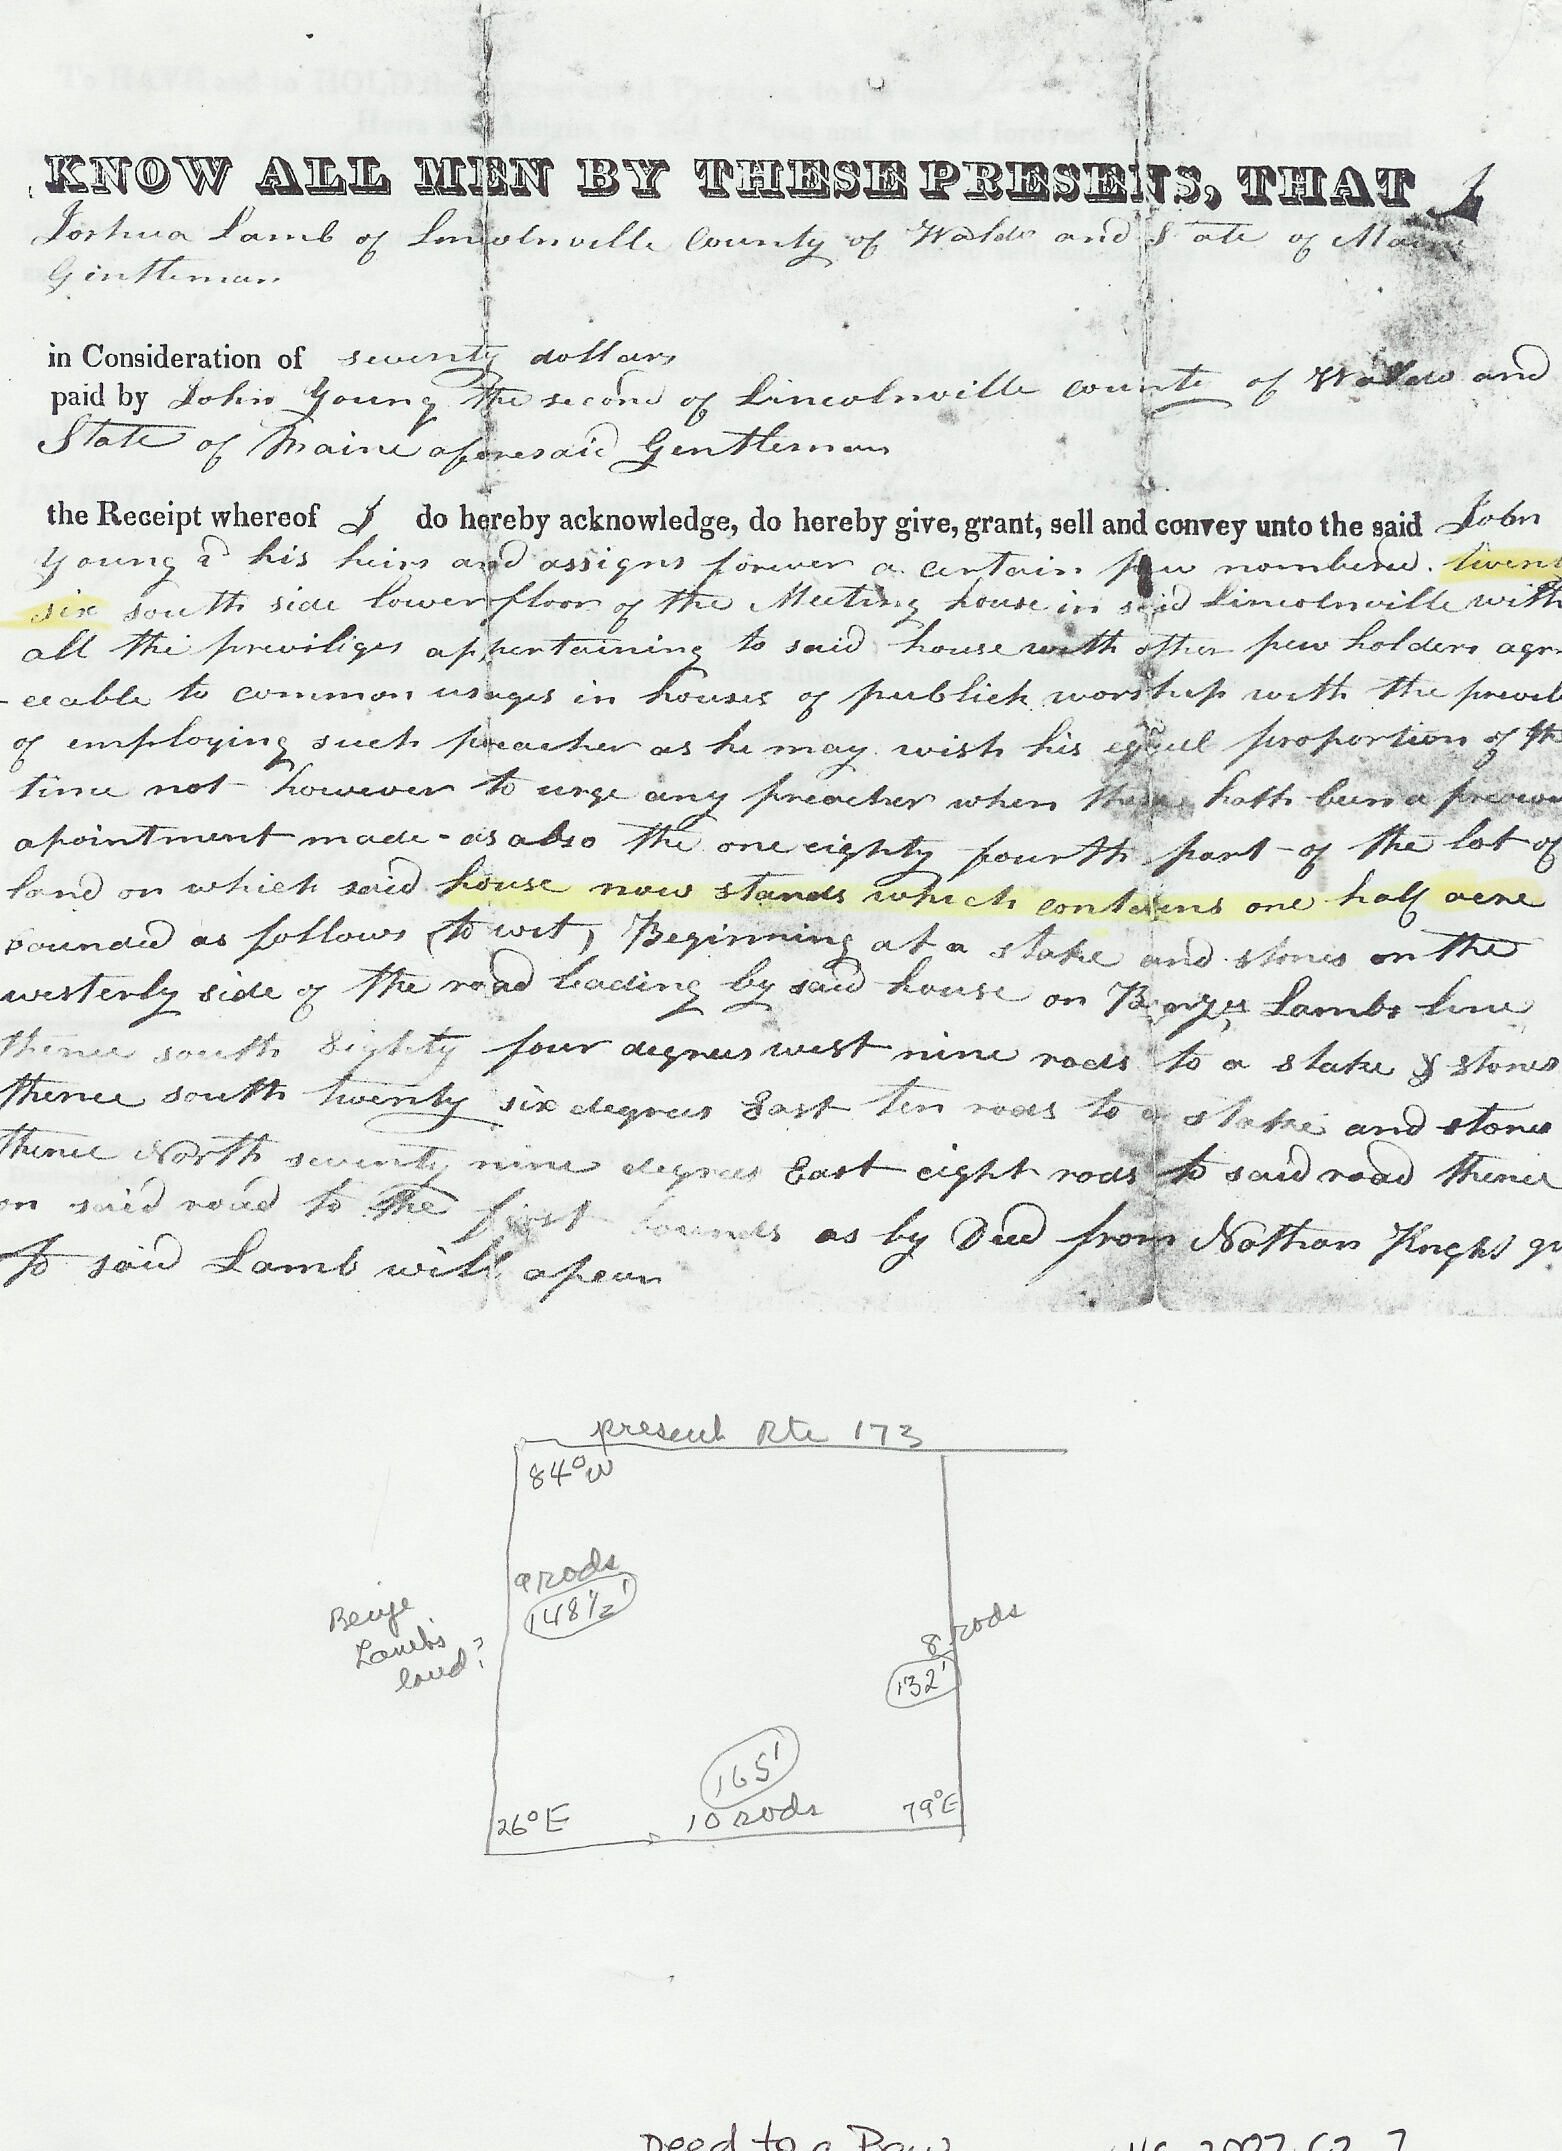 KNOW ALL MEN BY THESE PRESENS, THAT I
Joshua Lamb of Lincolnville County of Waldo and State of Maine
Gentleman
in Consideration of seventy dollars
paid by John Young the second of Lincolnville county of Waldo and
State of Maine aforesaid Gentleman
the Receipt whereof I do hereby acknowledge, do hereby give, grant, sell and convey unto the said John
Young 2d his heirs and assigns forever a certain pew nombered. twenty
six south side lower floor of the Meeting house in said Lincolnville with
all the previliges appertaining to said house with other pew holders agre
-eeable to common usages in houses of publick worship with the previl
of employing such preacher as he may wish his equel proportion of the
time not however to urge any preacher when there hath been a previou
apointment made - as also the one eighty fourth part of the lot of
land on which said house now stands which contains one half acre
bounded as follows (to wit) Beginning at a stake and stones on the
westerly side of the road leading by said house on Lambs line
thence south Eighty four degrees west nine rods to a stake & stones
thence south twenty six degrees East ten rods to a stake and stones
thence North seventy nine degrees East eight rods to said road thence
on said road to the first bounds as by Deed from Nathan
to said Lamb will apear
present Rte 173
84° W
9 rods
148 1/2'
Benje
Lamb's
land?
8 rods
132'
165'
10 rods
26° E
79° E
Deed to a Pew